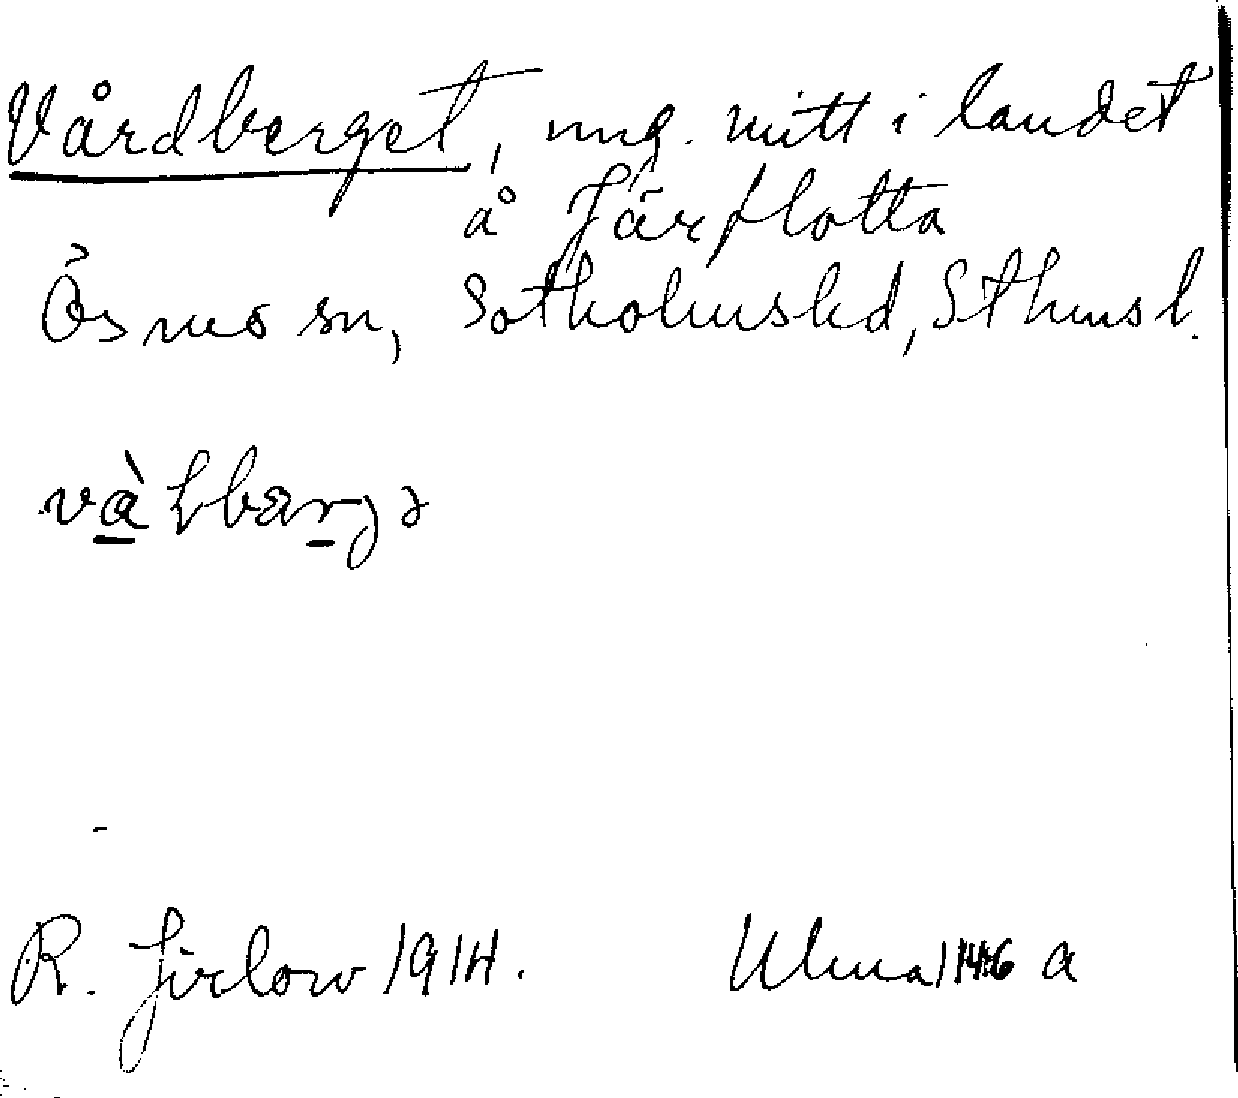 Vårdberget, mitt i landet
å Järflotta
Ösmo sn, Sotholms hd, Sthms l.
R. Jirlow 1914. Ulma 146 a